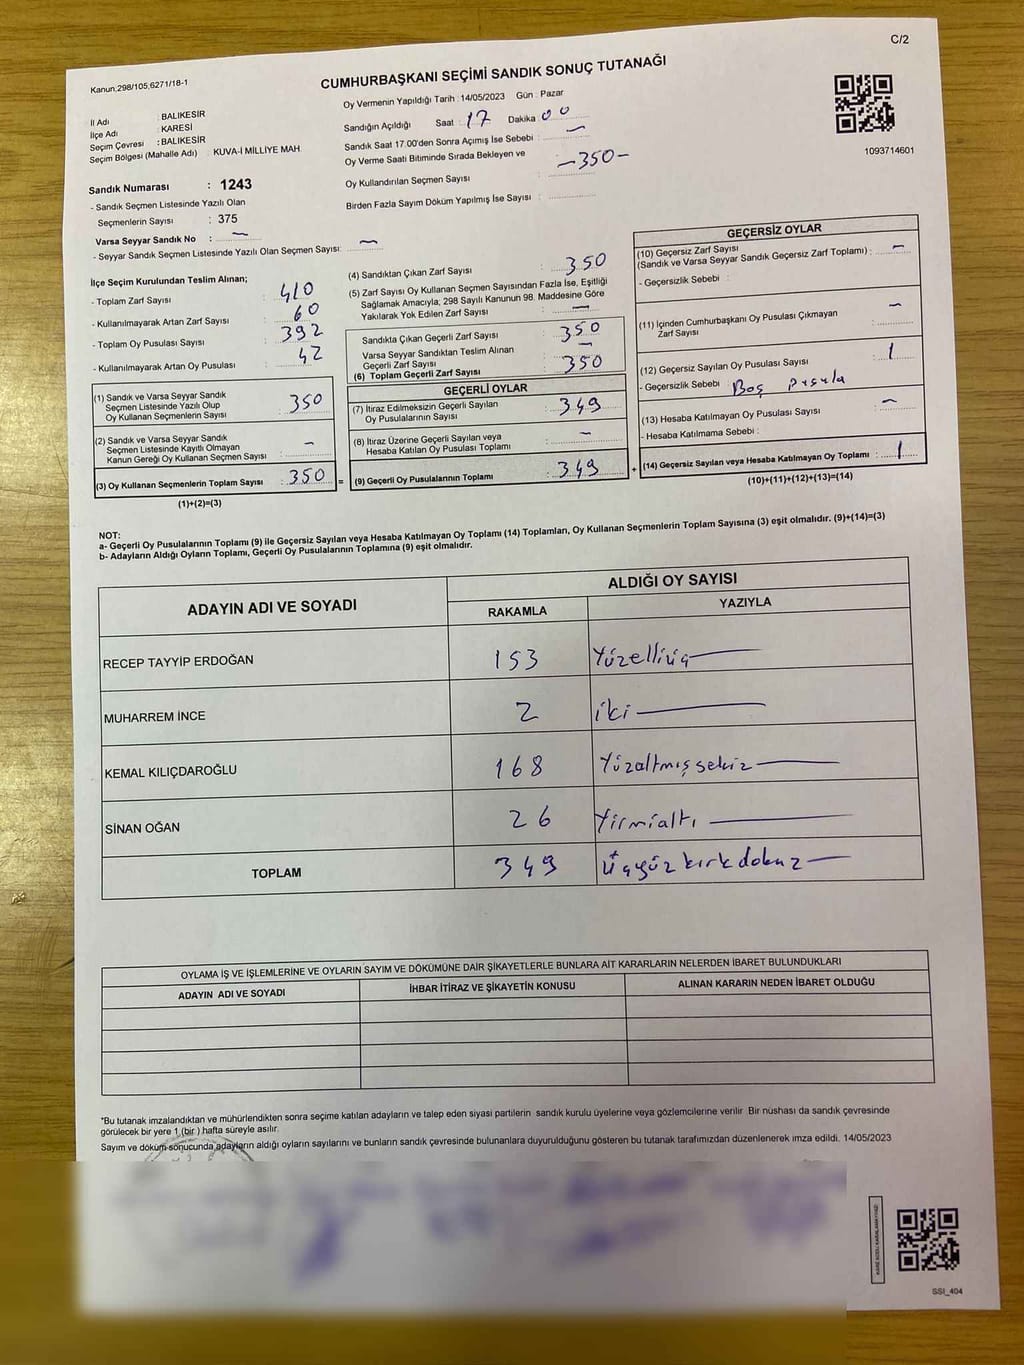 C/2
Kanun,298/105,6271/18-1
CUMHURBAŞKANI SEÇİMİ SANDIK SONUÇ TUTANAĞI
Oy Vermenin Yapıldığı Tarih : 14/05/2023 Gün : Pazar
İl Adı : BALIKESİR
İlçe Adı : KARESİ
Seçim Çevresi : BALIKESİR
Seçim Bölgesi (Mahalle Adı) : KUVA-İ MİLLİYE MAH.
Sandığın Açıldığı Saat : 17 Dakika 00
Sandık Saat 17.00'den Sonra Açımış İse Sebebi : –
Oy Verme Saati Bitiminde Sırada Bekleyen ve
Oy Kullandırılan Seçmen Sayısı : –350–
Birden Fazla Sayım Döküm Yapılmış İse Sayısı :
1093714601
Sandık Numarası : 1243
- Sandık Seçmen Listesinde Yazılı Olan
Seçmenlerin Sayısı : 375
Varsa Seyyar Sandık No : –
- Seyyar Sandık Seçmen Listesinde Yazılı Olan Seçmen Sayısı: –
İlçe Seçim Kurulundan Teslim Alınan;
- Toplam Zarf Sayısı : 410
- Kullanılmayarak Artan Zarf Sayısı : 60
- Toplam Oy Pusulası Sayısı : 392
- Kullanılmayarak Artan Oy Pusulası : 42
(1) Sandık ve Varsa Seyyar Sandık
Seçmen Listesinde Yazılı Olup
Oy Kullanan Seçmenlerin Sayısı : 350
(2) Sandık ve Varsa Seyyar Sandık
Seçmen Listesinde Kayıtlı Olmayan
Kanun Gereği Oy Kullanan Seçmen Sayısı : –
(3) Oy Kullanan Seçmenlerin Toplam Sayısı : 350
(1)+(2)=(3)
(4) Sandıktan Çıkan Zarf Sayısı : 350
(5) Zarf Sayısı Oy Kullanan Seçmen Sayısından Fazla İse, Eşitliği
Sağlamak Amacıyla; 298 Sayılı Kanunun 98. Maddesine Göre
Yakılarak Yok Edilen Zarf Sayısı : –
Sandıkta Çıkan Geçerli Zarf Sayısı : 350
Varsa Seyyar Sandıktan Teslim Alınan
Geçerli Zarf Sayısı : –
(6) Toplam Geçerli Zarf Sayısı : 350
GEÇERLİ OYLAR
(7) İtiraz Edilmeksizin Geçerli Sayılan
Oy Pusulalarının Sayısı : 349
(8) İtiraz Üzerine Geçerli Sayılan veya
Hesaba Katılan Oy Pusulası Toplamı : –
= (9) Geçerli Oy Pusulalarının Toplamı : 349
GEÇERSİZ OYLAR
(10) Geçersiz Zarf Sayısı
(Sandık ve Varsa Seyyar Sandık Geçersiz Zarf Toplamı) : –
- Geçersizlik Sebebi :
(11) İçinden Cumhurbaşkanı Oy Pusulası Çıkmayan
Zarf Sayısı : –
(12) Geçersiz Sayılan Oy Pusulası Sayısı : 1
- Geçersizlik Sebebi : Boş Pusula
(13) Hesaba Katılmayan Oy Pusulası Sayısı : –
- Hesaba Katılmama Sebebi :
+ (14) Geçersiz Sayılan veya Hesaba Katılmayan Oy Toplamı : 1
(10)+(11)+(12)+(13)=(14)
NOT:
a- Geçerli Oy Pusulalarının Toplamı (9) ile Geçersiz Sayılan veya Hesaba Katılmayan Oy Toplamı (14) Toplamları, Oy Kullanan Seçmenlerin Toplam Sayısına (3) eşit olmalıdır. (9)+(14)=(3)
b- Adayların Aldığı Oyların Toplamı, Geçerli Oy Pusulalarının Toplamına (9) eşit olmalıdır.
ADAYIN ADI VE SOYADI ALDIĞI OY SAYISI
RAKAMLA YAZIYLA
RECEP TAYYİP ERDOĞAN 153 Yüzelliüç
MUHARREM İNCE 2 iki
KEMAL KILIÇDAROĞLU 168 Yüzaltmışsekiz
SİNAN OĞAN 26 Yirmialtı
TOPLAM 349 Üçyüz kırk dokuz
OYLAMA İŞ VE İŞLEMLERİNE VE OYLARIN SAYIM VE DÖKÜMÜNE DAİR ŞİKAYETLERLE BUNLARA AİT KARARLARIN NELERDEN İBARET BULUNDUKLARI
ADAYIN ADI VE SOYADI İHBAR İTİRAZ VE ŞİKAYETİN KONUSU ALINAN KARARIN NEDEN İBARET OLDUĞU
*Bu tutanak imzalandıktan ve mühürlendikten sonra seçime katılan adayların ve talep eden siyasi partilerin sandık kurulu üyelerine veya gözlemcilerine verilir Bir nüshası da sandık çevresinde
görülecek bir yere 1 (bir ) hafta süreyle asılır.
Sayım ve döküm sonucunda adayların aldığı oyların sayılarını ve bunların sandık çevresinde bulunanlara duyurulduğunu gösteren bu tutanak tarafımızdan düzenlenerek imza edildi. 14/05/2023
SSI_404